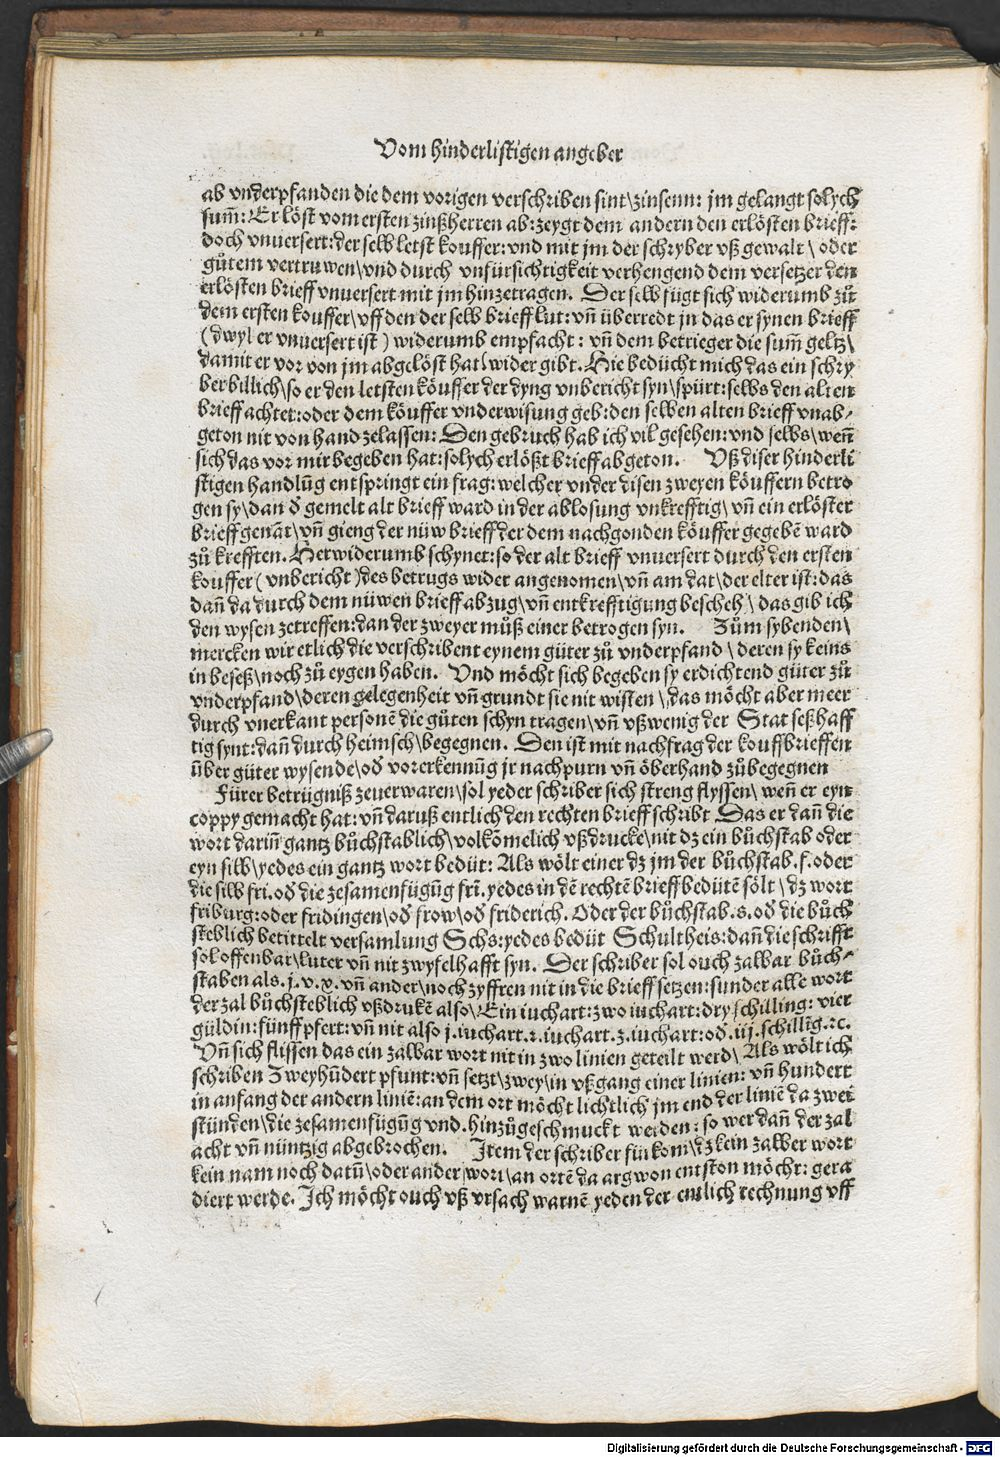 Vom hinderlistigen angeber
ab vnderpfanden die dem vorigen verschriben sint\zinsenn: jm gelangt solych
sum̃: Er löst vom ersten zinßherren ab: zeygt dem andern den erlösten brieff:
doch vnuersert: der selb letst kouffer: vnd mit jm der schryber vß gewalt \ oder
gůtem vertruwen\vnd durch vnfürsichtigkeit verhengend dem versetzer den
erlösten brieff vnuersert mit jm hinzetragen. Der selb fügt sich widerumb zůr
dem ersten kouffer\vff den der selb brieff lut: vñ überredt jn das er synen brieff
(dwyl er vnuersert ist) widerumb empfacht: vñ dem betrieger die sum̃ geltz\
damit er vor von jm abgelöst hat\wider gibt. Hie bedücht mich das ein schry
ber billich\so er den letsten köuffer der dyng vnbericht syn\spürt: selbs den alten
brieff achtet: oder dem köuffer vnderwisung geb: den selben alten brieff vnab-
geton nit von hand zelassen: Den gebruch hab ich vil gesehen: vnd selbs\weñ
sich das vor mir begeben hat: solych erlößt brieff abgeton. Vß diser hinderli
stigen handlũg entspringt ein frag: welcher vnder disen zweyen köuffern betro
gen sy\dan d̕ gemelt alt brieff ward in der ablosung vnkrefftig\vñ ein erlöster
brieff genãt\vñ gieng der nüw brieff der dem nachgonden köuffer gegebẽ ward
zů krefften. Herwiderumb schynet: so der alt brieff vnuersert durch den ersten
kouffer (vnbericht) des betrugs wider angenomen\vñ am dat\der elter ist: das
dañ da durch dem nüwen brieff abzug\vñ entkrefftigung bescheh\ das gib ich
den wysen zetreffen: dan der zweyer můß einer betrogen syn. Zům sybenden\
mercken wir etlich die verschribent eynem güter zů vnderpfand \ deren sy keins
in beseß\noch zů eygen haben. Vnd möcht sich begeben sy erdichtend güter zů
vnderpfand\deren gelegenheit vñ grundt sie nit wisten \ das möcht aber meer
durch vnerkant personẽ die gůten schyn tragen\vñ vßwenig der Stat seßhaff
tig synt: dañ durch heimsch\begegnen. Den ist mit nachfrag der kouffbrieffen
über güter wysende\od̕ vorerkennũg jr nachpurn vñ öberhand zůbegegnen
Fürer betrügniß zeuerwaren\sol yeder schriber sich streng flyssen\ weñ er eyn
coppy gemacht hat: vñ daruß entlich den rechten brieff schribt Das er dañ die
wort dariñ gantz bůchstablich\volkõmelich vßdrucke\nit dz ein bůchstab oder
eyn silb\yedes ein gantz wort bedüt: Als wölt einer dz jm der bůchstab .f. oder
die silb fri. od̕ die zesamenfügũg frĩ. yedes in dẽ rechtẽ brieff bedütẽ sölt \ dz wort
friburg: oder fridingen\od̕ frow\od̕ friderich. Oder der bůchstab .s. od̕ die bůch
steblich betittelt versamlung Schs: yedes bedüt Schultheis: dañ die schrifft
sol offenbar\luter vñ nit zwyfelhafft syn. Der schriber sol ouch zalbar bůch-
staben als .j. v. x. vñ ander\noch zyffren nit in die brieff setzen: sunder alle wort
der zal bůchsteblich vßdrukẽ also\ Ein iuchart: zwo iuchart: dry schilling: vier
güldin: fünff pfert: vñ nit also j. iuchart. 2. iuchart. 3. iuchart: od̕ iij. schillĩg. ⁊c.
Vñ sich flissen das ein zalbar wort nit in zwo linien geteilt werd\ Als wölt ich
schriben Zweyhũdert pfunt: vñ setzt\zwey\in vßgang einer linien: vñ hundert
in anfang der andern liniẽ: an dem ort möcht lichtlich jm end der liniẽ da zwei
stünden\die zesamenfügũg vnd. hinzůgeschmuckt werden: so wer dañ der zal
acht vñ nüntzig abgebrochen. Item der schriber fürkom\dz kein zalber wort
kein nam noch datũ\oder ander wort\an ortẽ da argwon entston möcht: gera
diert werde. Ich möcht ouch vß vrsach warnẽ yeden der entlich rechnung vff
Digitalisierung gefördert durch die Deutsche Forschungsgemeinschaft - DFG